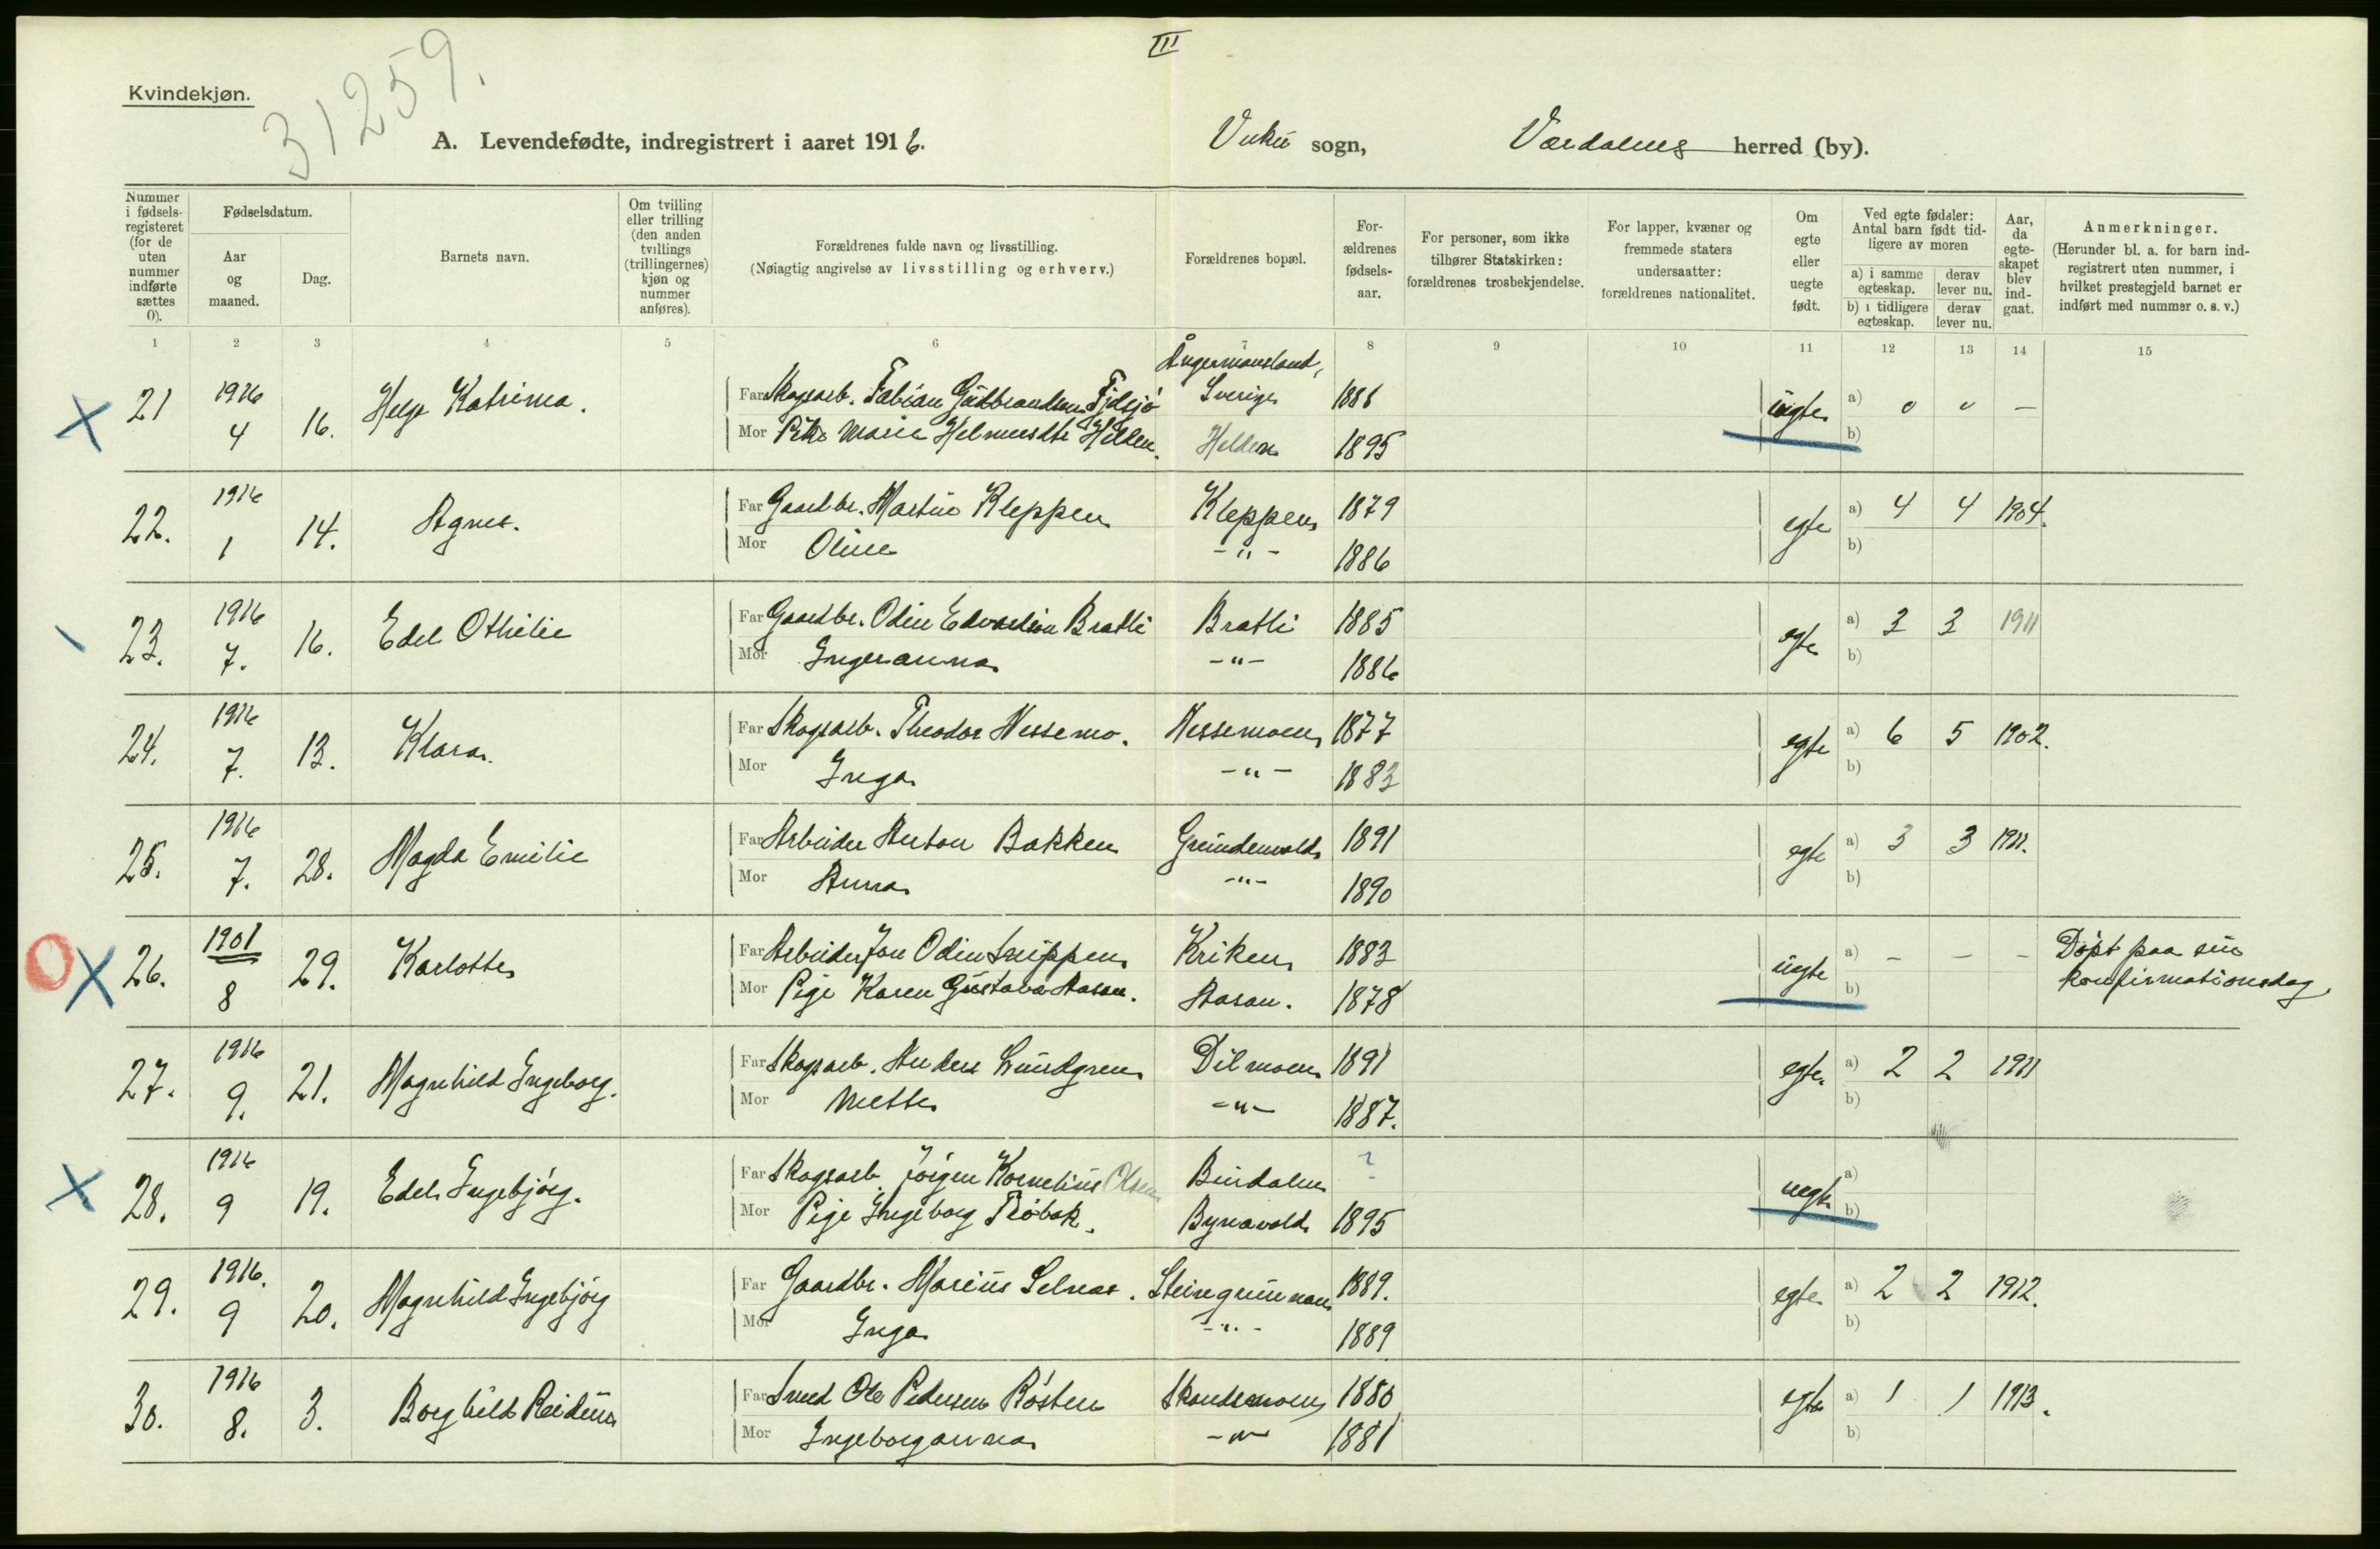 III
Kvindekjøn.
31259.
A. Levendefødte, indregistrert i aaret 1916. Vuku sogn, Værdalens herred (by).
Nummer i fødsels-registeret (for de uten nummer indførte sættes 0).
Fødselsdatum.
Aar og maaned.
Dag.
Barnets navn.
Om tvilling eller trilling (den anden tvillings (trillingernes) kjøn og nummer anføres).
Forældrenes fulde navn og livsstilling.
(Nøiagtig angivelse av livsstilling og erhverv.)
Forældrenes bopæl.
For-ældrenes fødsels-aar.
For personer, som ikke tilhører Statskirken: forældrenes trosbekjendelse.
For lapper, kvæner og fremmede staters undersaatter: forældrenes nationalitet.
Om egte eller uegte født.
Ved egte fødsler: Antal barn født tid-ligere av moren
a) i samme egteskap.
derav lever nu.
b) i tidligere egteskap.
derav lever nu.
Aar, da egte-skapet blev ind-gaat.
Anmerkninger.
(Herunder bl. a. for barn ind-registrert uten nummer, i hvilket prestegjeld barnet er indført med nummer o. s. v.)
1 2 3 4 5 6 7 8 9 10 11 12 13 14 15
X 21 1916 4 16. Helga Katrina. Far Skogsarb. Fabian Gudbrandsen Fjelsjø Ångermansland, Sverige 1886 uegte a) 0 0 —
Mor Marie Helmersdtr Helden. Helden 1895 b)
22. 1916 1 14. Agnes. Far Gaardbr. Martin Kleppen Kleppen 1879 egte a) 4 4 1904.
Mor Oline -"- 1886 b)
23. 1916 7. 16. Edel Othilie Far Gaardbr. Odin Edvardsen Bratli Bratli 1885 egte a) 3 3 1911
Mor Ingeranna -"- 1886 b)
24. 1916 7. 13. Klara. Far Skogsarb. Theodor Nessemo. Nessemoen 1877 egte a) 6 5 1902.
Mor Inga -"- 1883 b)
25. 1916 7. 28. Magda Emilie Far Arbeider Anton Bakken Grundenvold 1891 egte a) 3 3 1911.
Mor Anna -"- 1890 b)
O X 26. 1901 8 29. Karlotte Far Arbeider Jon Odin Kriken 1883 uegte a) - - - Døpt paa sin
Mor Pige Karen Gustava Aasan. Aasan. 1878 b) konfirmationsdag.
27. 1916 9. 21. Magnhild Ingeborg. Far Skogsarb. Anders Lundgren Dilmoen 1891 egte. a) 2 2 1911
Mor Mette -"- 1887. b)
X 28. 1916 9 19. Edel Ingebjørg. Far Skogsarb. Jørgen Kornelius Olsen Bindalen ? uegte a)
Mor Pige Ingeborg Trøbak. Bynavold 1895 b)
29. 1916. 9 20. Magnhild Ingebjørg Far Gaardbr. Marius Selnas. 1889. egte a) 2 2 1912.
Mor Inga -"- 1889 b)
30. 1916 8. 3. Borghild Reidun Far Smed Ole Pedersen Røsten 1880 egte a) 1 1 1913.
Mor Ingeborganna -"- 1881 b)